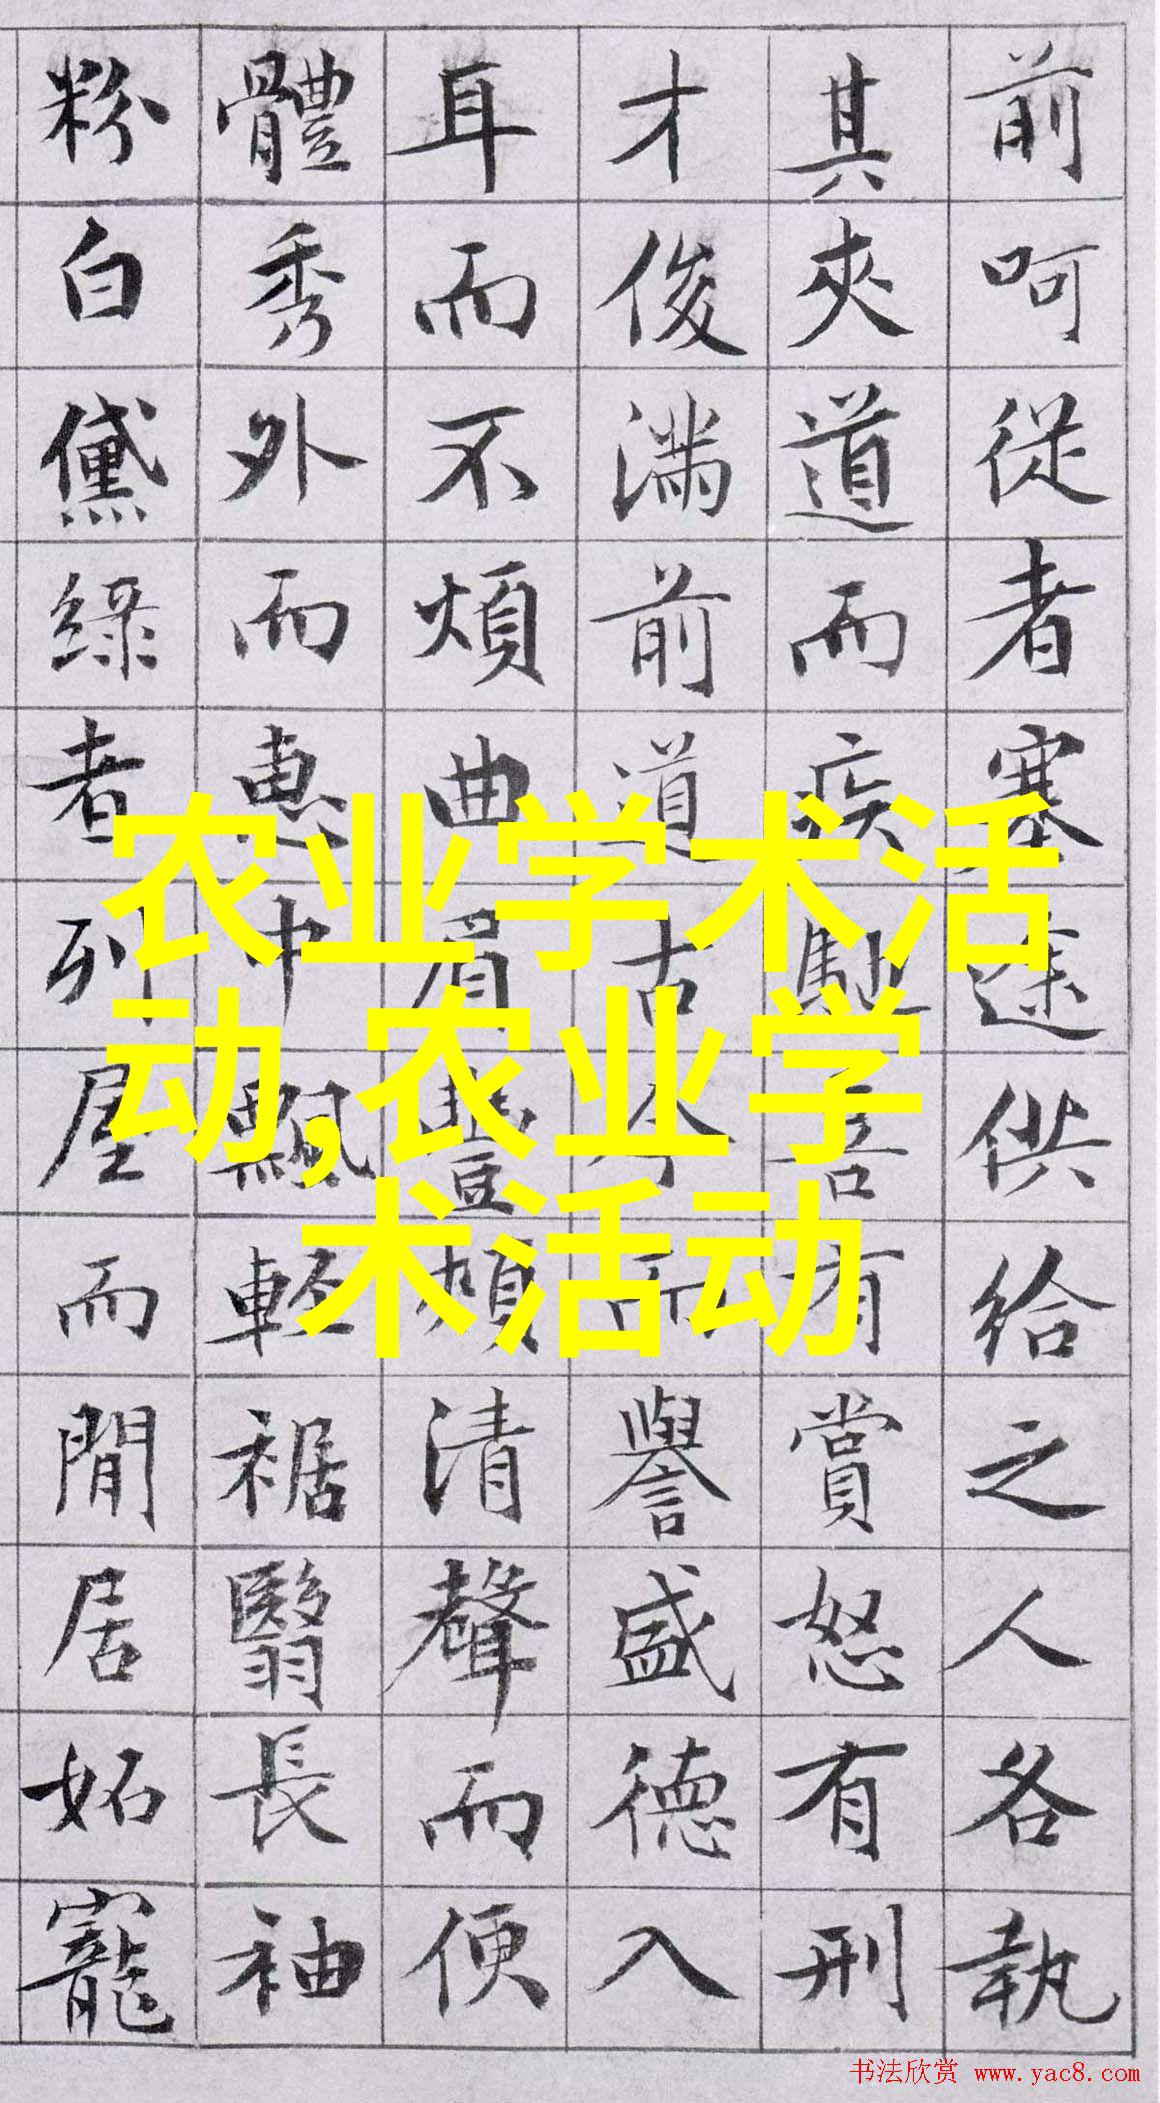 前呵從者塞途供給之人各執
其夾道而疾馳喜有賞怒有刑
才俊滿前道古今而譽盛德入
耳而不煩曲眉豐頰清聲而便
體秀外而惠中飄輕裾翳長袖
粉白黛綠者列屋而閒居妬寵
农业学术活
动,农业学
术活动
书法欣赏 www.yac8.com